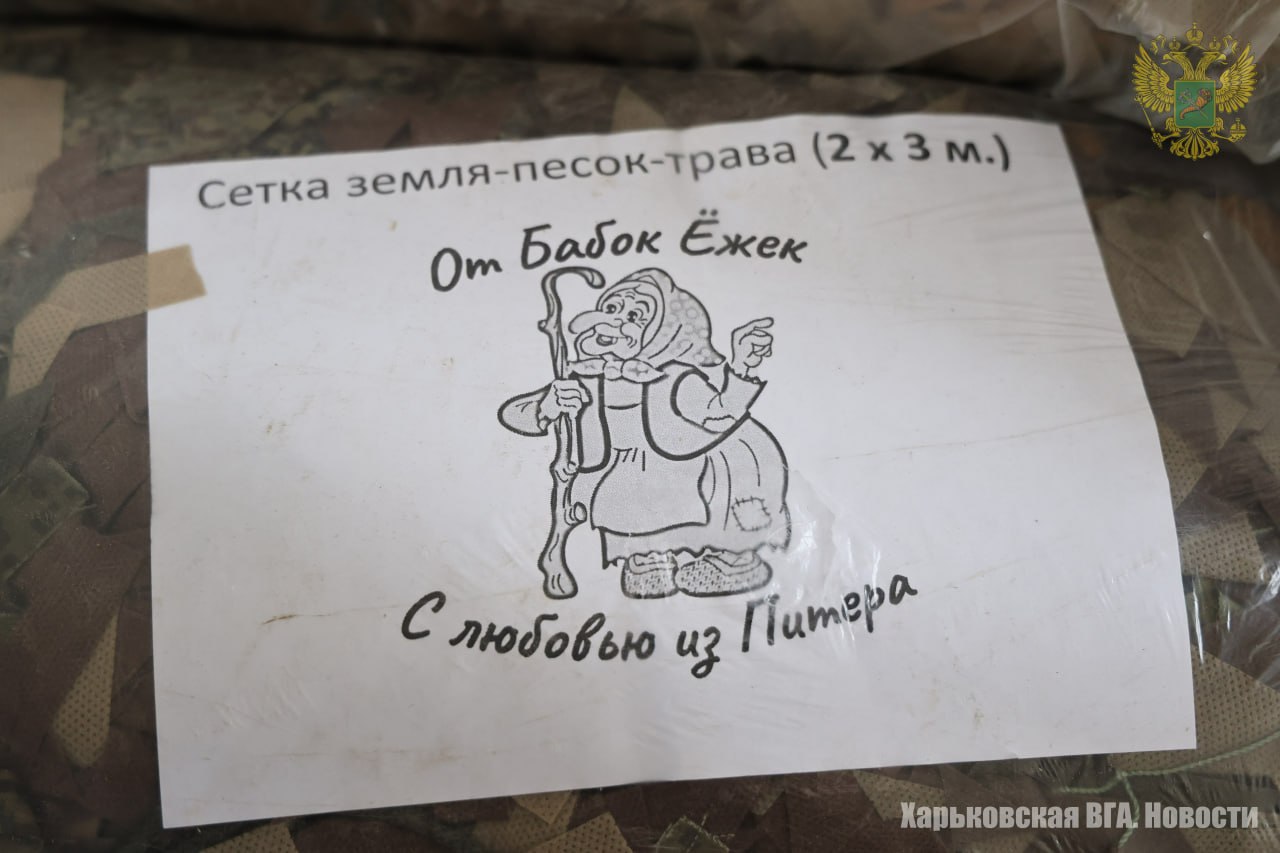 Сетка земля-песок-трава (2 х 3 м.)
От Бабок Ёжек
С любовью из Питера
Харьковская ВГА. Новости